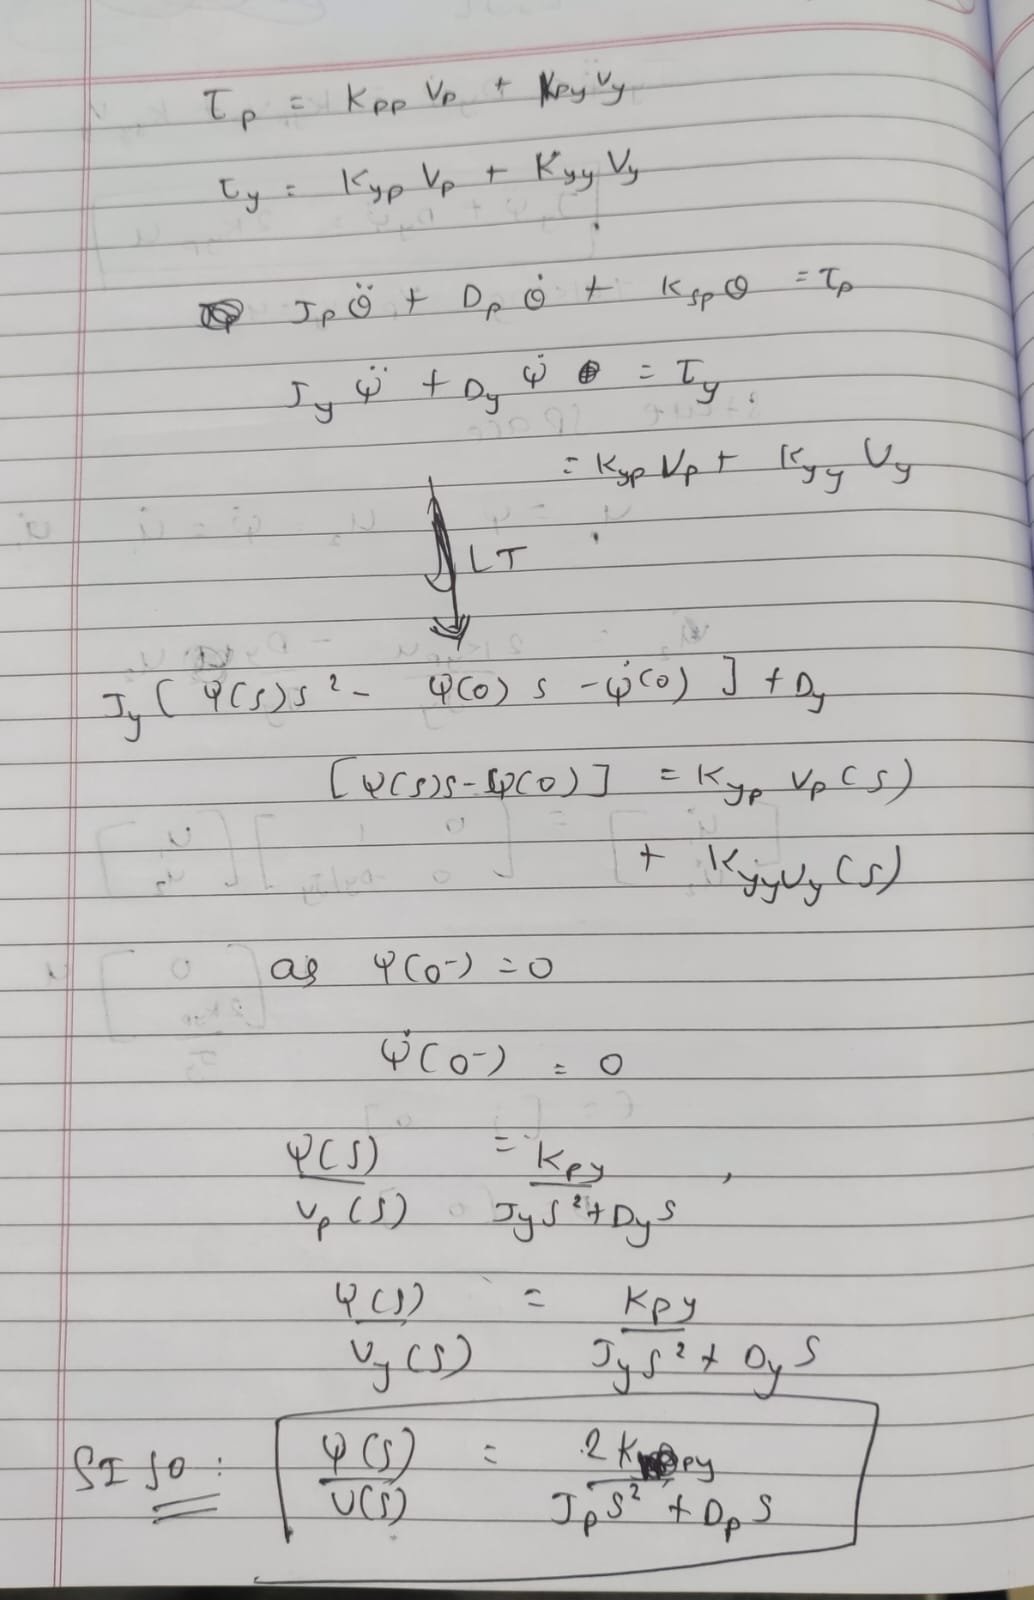 τp = Kpp Vp + Kpy Vy
τy = Kyp Vp + Kyy Vy
Jp θ̈ + Dp θ̇ + Ksp θ = τp
Jy ψ̈ + Dy ψ̇ = τy
= Kyp Vp + Kyy Vy
LT
Jy [ ψ(s)s² - ψ(0) s - ψ̇(0) ] + Dy
[ψ(s)s - ψ(0)] = Kyp Vp(s)
+ Kyy Vy(s)
as ψ(0⁻) = 0
ψ̇(0⁻) = 0
ψ(s)/Vp(s) = Kpy/Jy s² + Dy s ,
ψ(s)/Vy(s) = Kpy/Jy s² + Dy s
SISO : ψ(s)/U(s) = 2 Kpy/Jp s² + Dp s